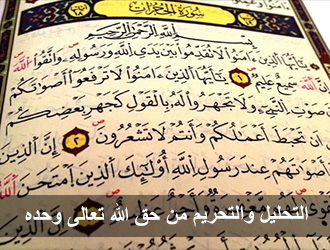 سُورَةُ الْحُجُرَاتِ
بِسْمِ اللَّهِ الرَّحْمَٰنِ الرَّحِيمِ
يَٰٓأَيُّهَا الَّذِينَ ءَامَنُوا لَا تُقَدِّمُوا بَيْنَ يَدَيِ اللَّهِ وَرَسُولِهِ وَاتَّقُوا اللَّهَ
إِنَّ اللَّهَ سَمِيعٌ عَلِيمٌ ١ يَٰٓأَيُّهَا الَّذِينَ ءَامَنُوا لَا تَرْفَعُوٓا أَصْوَٰتَكُمْ
صَوْتِ النَّبِيِّ وَلَا تَجْهَرُوا لَهُ بِالْقَوْلِ كَجَهْرِ بَعْضِكُمْ
أَن تَحْبَطَ أَعْمَٰلُكُمْ وَأَنتُمْ لَا تَشْعُرُونَ ٢ إِنَّ الَّذِينَ
أَصْوَٰتَهُمْ عِندَ رَسُولِ اللَّهِ أُولَٰٓئِكَ الَّذِينَ امْتَحَنَ اللَّهُ
التحليل والتحريم من حق الله تعالى وحده